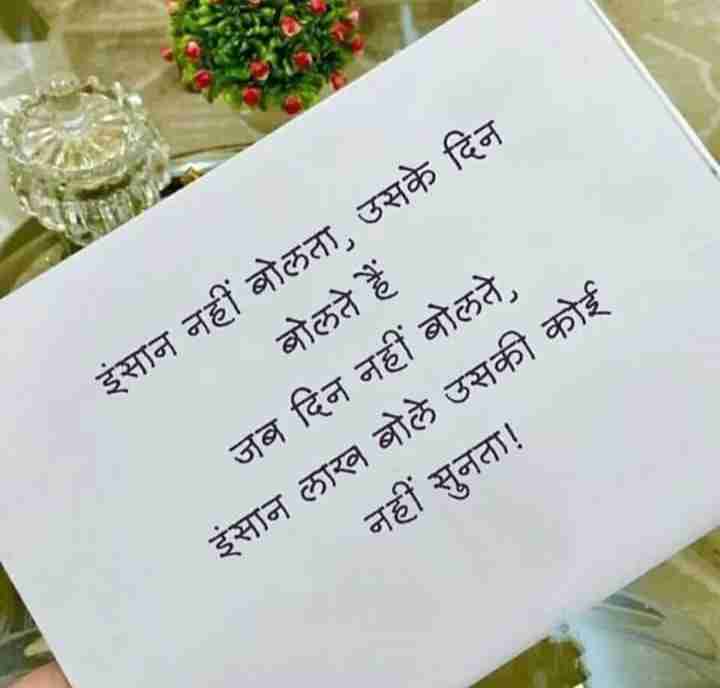 इंसान नहीं बोलता, उसके दिन
बोलते हैं
जब दिन नहीं बोलते,
इंसान लाख बोले उसकी कोई
नहीं सुनता!